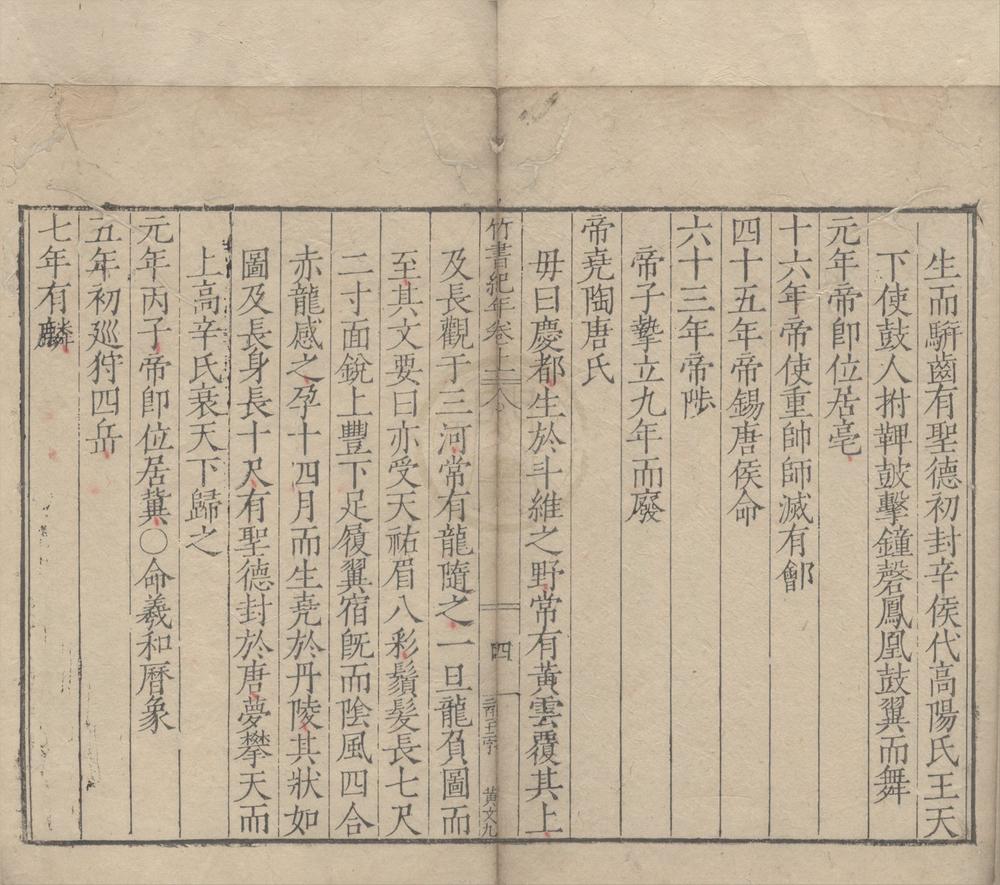 生而騈齒有聖德初封辛侯代高陽氏王天
下使鼓人拊鞞鼓擊鐘磬鳳凰鼓翼而舞
元年帝卽位居亳
十六年帝使重帥師滅有鄶
四十五年帝錫唐侯命
六十三年帝陟
帝子摯立九年而廢
帝堯陶唐氏
毋曰慶都生於斗維之野常有黃雲覆其上
竹書紀年卷上 四 黃文九
及長觀于三河常有龍隨之一旦龍負圖而
至其文要曰亦受天祐眉八彩鬚髮長七尺
二寸面銳上豐下足履翼宿旣而陰風四合
赤龍感之孕十四月而生堯於丹陵其狀如
圖及長身長十尺有聖德封於唐夢攀天而
上高辛氏衰天下歸之
元年丙子帝卽位居冀○命羲和曆象
五年初廵狩四岳
七年有麟